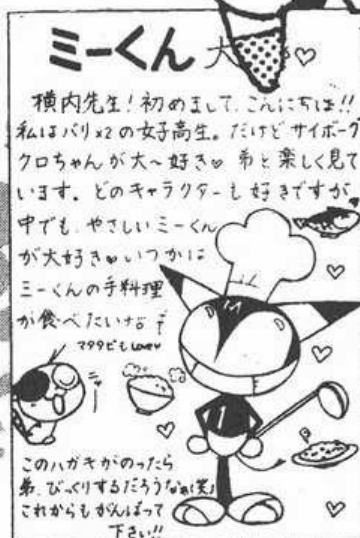 ミーくん 大好き♡
横内先生!初めまして、こんにちは!!
私はバリ×2の女子高生。だけどサイボーグ
クロちゃんが大〜好き♥弟と楽しく見て
います。どのキャラクターも好きですが
中でも、やさしいミーくん
が大好き♥いつかは
ミーくんの手料理
が食べたいなぁ
マタタビもLOVE♥
ニャー
このハガキがのったら
弟、びっくりするだろうなぁ(笑)
これからもがんばって
下さい!!